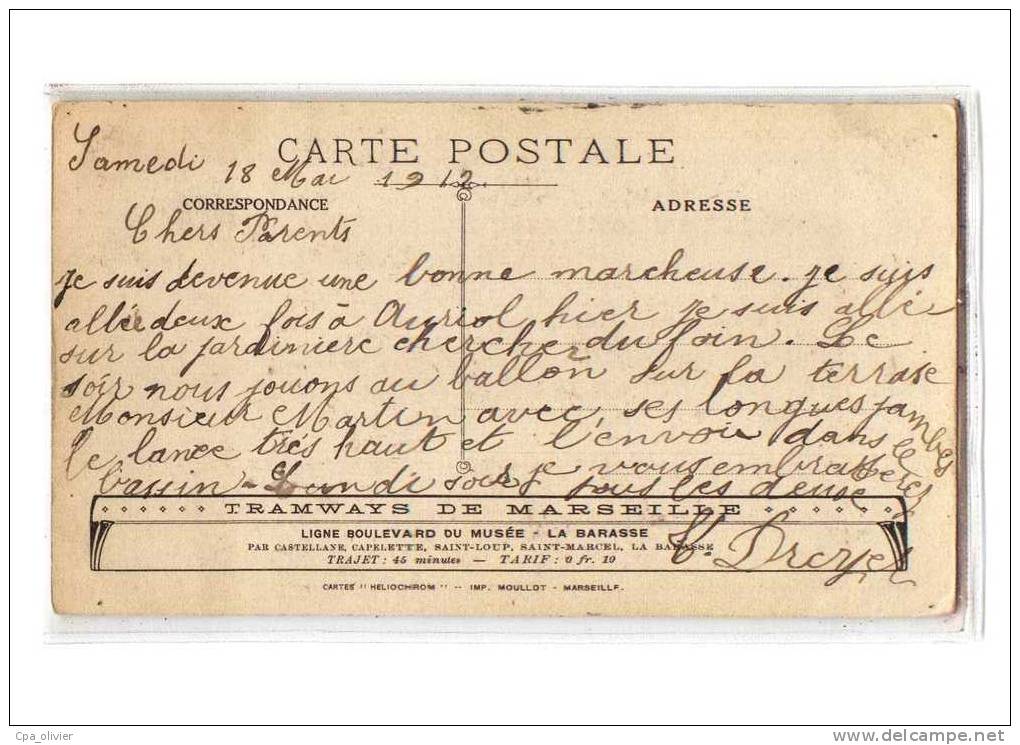 CARTE POSTALE
Samedi 18 Mai 1912
CORRESPONDANCE
ADRESSE
Chers Parents
je suis devenue une bonne marcheuse. je suis
allée deux fois à Auriol hier je suis allé
sur la jardiniere chercher du foin. Le
soir nous jouons au ballon sur la terrase
Monsieur Martin avec ses longues jambes
le lance très haut et l'envoie dans le
bassin - Lundi soir je vous embrasserez
tous les deuse
TRAMWAYS DE MARSEILLE
LIGNE BOULEVARD DU MUSÉE - LA BARASSE
PAR CASTELLANE, CAPELETTE, SAINT-LOUP, SAINT-MARCEL, LA BARASSE
TRAJET : 45 minutes — TARIF : 0 fr. 10
V. Dreyer
CARTES "HELIOCHROM" -- IMP. MOULLOT - MARSEILLE.
Cpa_olivier
www.delcampe.net